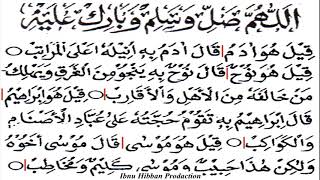 اَللّٰهُمَّ صَلِّ وَسَلِّمْ وَبَارِكْ عَلَيْهِ
قِيْلَ هُوَ اٰدَمُ قَالَ اٰدَمُ بِهِ اُنِيْلُهُ اَعْلَى الْمَرَاتِبْ
قِيْلَ هُوَ نُوْحٌ قَالَ نُوْحٌ بِهِ يَنْجُوْ مِنَ الْغَرَقِ وَيَهْلِكُ
مَنْ خَالَفَهُ مِنَ الْاَهْلِ وَالْاَقَارِبْ قِيْلَ هُوَ اِبْرَاهِيْمُ
قَالَ اِبْرَاهِيْمُ بِهِ تَقُوْمُ حُجَّتُهُ عَلٰى عُبَّادِ الْاَصْنَامِ
وَالْكَوَاكِبْ قِيْلَ هُوَ مُوْسٰى قَالَ مُوْسٰى اَخُوْهُ
وَلٰكِنْ هٰذَا حَبِيْبٌ وَمُوْسٰى كَلِيْمٌ وَمُخَاطِبْ
Ibnu Hibban Production*